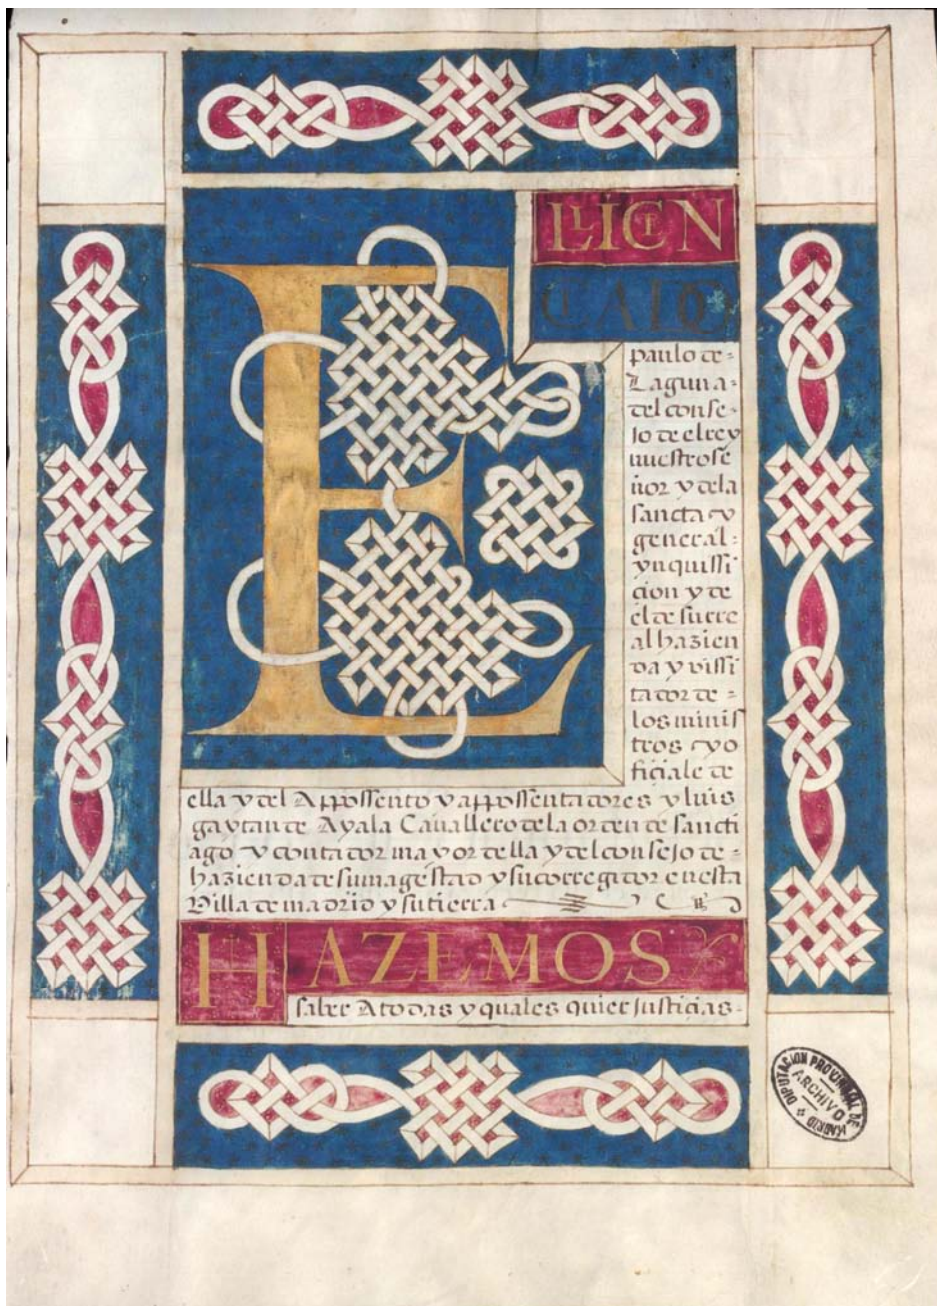 E
L LICEN
CIADO
paulo de=
Laguna=
del conse-
jo de el rey
nuestro se
ñor y de la
sancta y
general=
ynquissi
cion y de
el de su rre
al hazien
da y vissi
tador de=
los minis
tros y o
ficiale de
ella y del Appossento y appossentadores y luis
gaytan de Ayala Cavallero de la orden de sancti
ago y contador mayor della y del consejo de=
hazienda de su magestad y su corregidor en esta
Villa de madrid y su tierra
HAZEMOS
saber A todas y quales quier justicias-
DIPUTACION PROVINCIAL DE MADRID
ARCHIVO